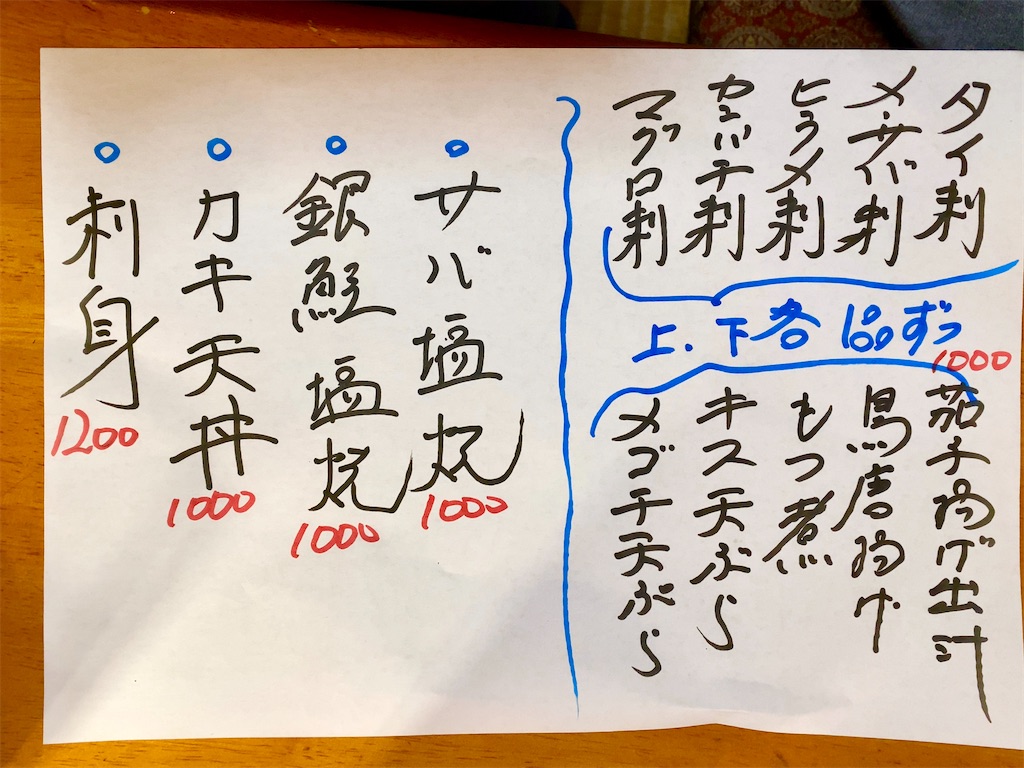 タイ刺
〆サバ刺
ヒラメ刺
カンパチ刺
マグロ刺
上.下各1品ずつ
1000
茄子揚げ出汁
鳥唐揚げ
もつ煮
キス天ぷら
メゴチ天ぷら
サバ塩焼
1000
銀鮭塩焼
1000
カキ天丼
1000
刺身
1200